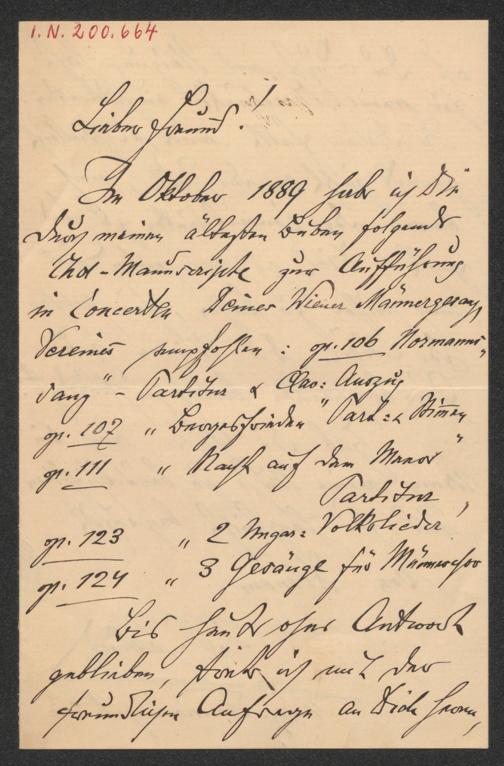 I.N. 200.664
Lieber Freund!
Im Oktober 1889 habe ich Dir
durch meinen ältesten Buben folgende
Chor-Manuscripte zur Aufführung
in Concerten Deines Wiener Männergesang
Vereines empfohlen: op. 106 Normanns-
sang" – Partitur & Clav: Auszug
op. 107 " Bergesfrieden" Part: & Stimmen
op. 111 " Nacht auf dem Meere"
Partitur,
op. 123 " 2 Ungar: Volkslieder
op. 124 " 3 Gesänge für Männerchor
Bis heute ohne Antwort
geblieben, trete ich mit der
freundlichen Anfrage an Dich heran,